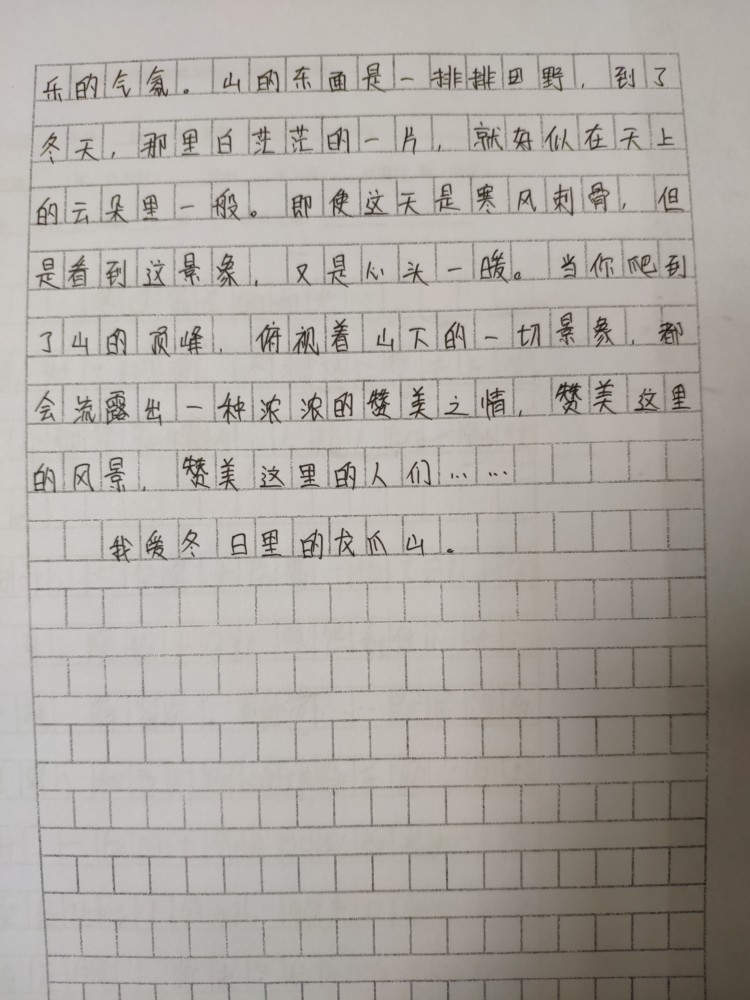 乐的气氛。山的东面是一排排田野，到了
冬天，那里白茫茫的一片，就好似在天上
的云朵里一般。即使这天是寒风刺骨，但
是看到这景象，又是心头一暖。当你爬到
了山的顶峰，俯视着山下的一切景象，都
会流露出一种浓浓的赞美之情，赞美这里
的风景，赞美这里的人们……
我爱冬日里的龙爪山。